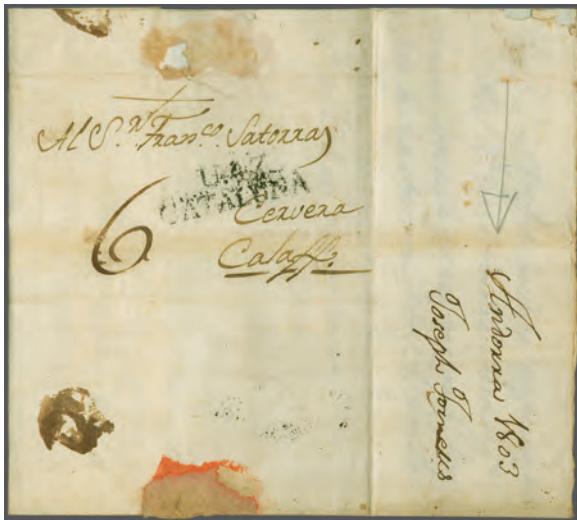 Al S.ʳ Fran.ᶜᵒ Satorras
CATALUÑA
6
Cervera
Calaff.
Andorra 1803
Joseph